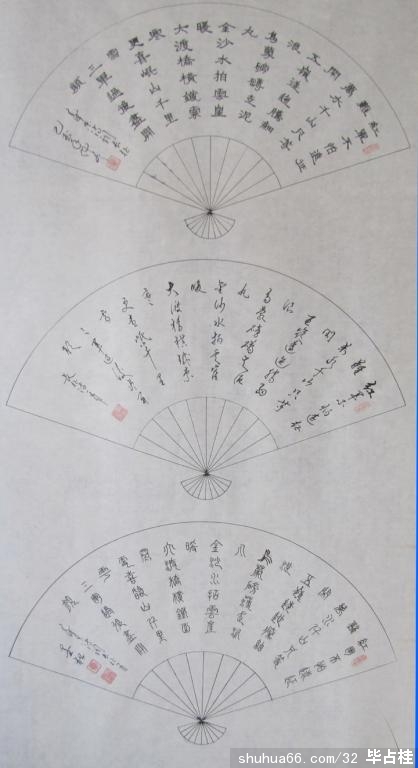 紅軍不怕遠征
難
萬水千山只等
閑
五嶺逶迤騰細
浪
烏蒙磅礴走泥
丸
金沙水拍雲崖
暖
大渡橋橫鐵索
寒
更喜岷山千里
雪
三軍過後盡開
顏
紅軍不怕遠征
難
萬水千山只等
閑
五嶺逶迤騰細
浪
烏蒙磅礴走泥
丸
金沙水拍雲崖
暖
大渡橋橫鐵索
寒
更喜岷山千里
雪
三軍過後盡開
顏
紅軍不怕遠征
難
萬水千山只等
閑
五嶺逶迤騰細
浪
烏蒙磅礴走泥
丸
金沙水拍雲崖
暖
大渡橋橫鐵索
寒
更喜岷山千里
雪
三軍過後盡開
顏
shuhua66.com/32 毕占桂